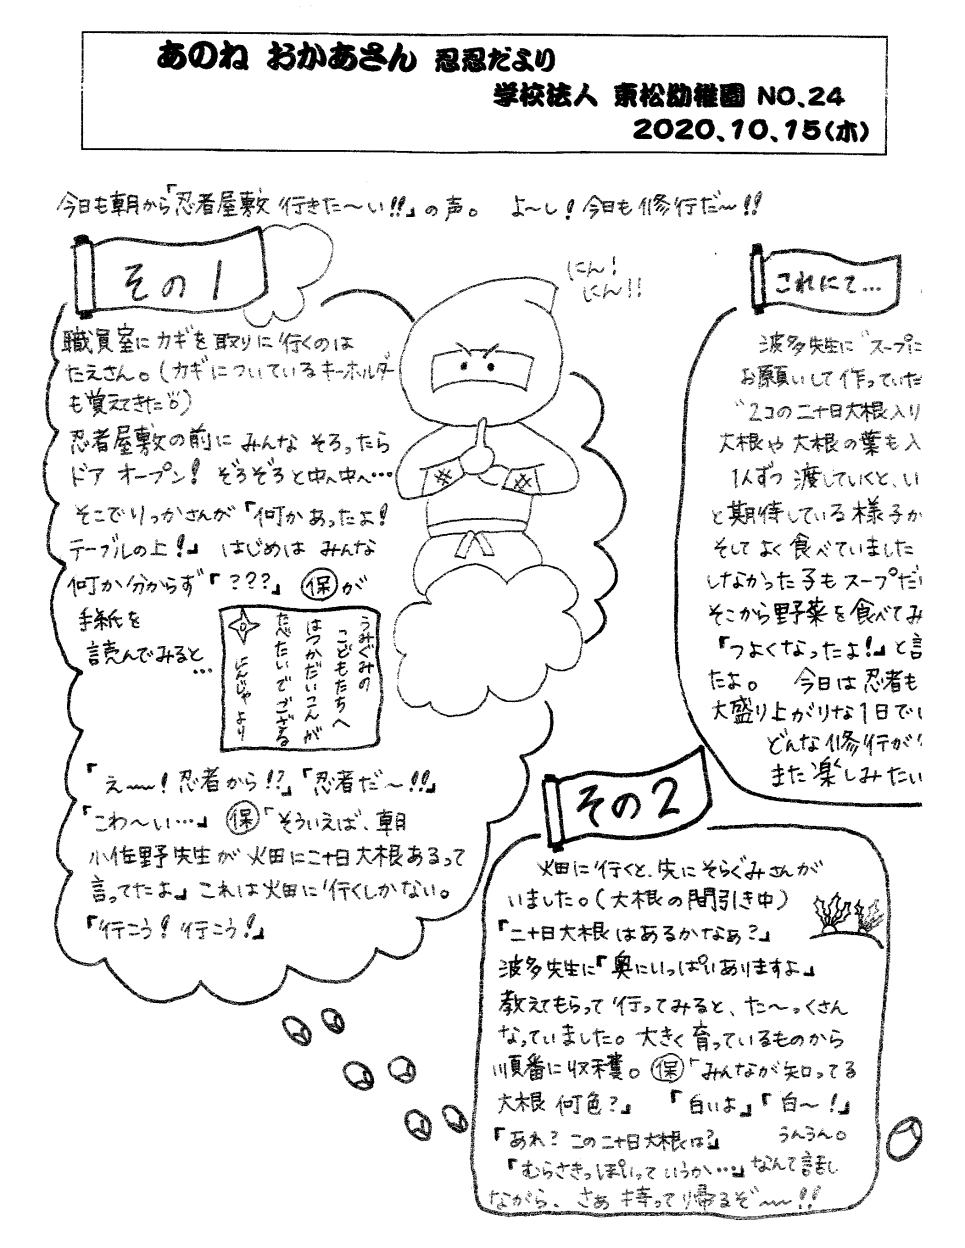 あのね おかあさん 忍忍だより
学校法人 東松幼稚園 NO、24
2020、10、15(木)
今日も朝から「忍者屋敷 行きた〜い!!」の声。 よ〜し!今日も修行だ〜!!
その1
職員室にカギを取りに行くのは
たえさん。(カギについているキーホルダー
も覚えてきた)
忍者屋敷の前に みんな そろったら
ドア オープン! ぞろぞろと中へ中へ…
そこでりっかさんが「何かあったよ!
テーブルの上!」 はじめは みんな
何か分からず「???」 保が
手紙を
読んでみると…
うみぐみの
こどもたちへ
はつかだいこんが
たべたいでござる
にんじゃ より
「え〜!忍者から!?」「忍者だ〜!!」
「こわ〜い…」 保「そういえば、朝
小佐野先生が 畑に二十日大根あるって
言ってたよ」これは畑に行くしかない。
「行こう!行こう!」
にん!
にん!!
その2
畑に行くと、先にそらぐみさんが
いました。(大根の間引き中)
「二十日大根はあるかなぁ?」
波多先生に「奥にいっぱいありますよ」
教えてもらって行ってみると、た〜っくさん
なっていました。大きく育っているものから
順番に収穫。保「みんなが知ってる
大根 何色?」 「白いよ」「白〜!」
「あれ?この二十日大根は?」 うんうん。
「むらさきっぽいっていうか…」なんて話し
ながら、さぁ 持って帰るぞ〜!!
これにて…
波多先生に"スープに
お願いして作っていた
"2コの二十日大根入り
大根や大根の葉も入
1人ずつ渡していくと、い
と期待している様子か
そしてよく食べていました
しなかった子もスープだ
そこから野菜を食べてみ
「つよくなったよ!」と言
たよ。 今日は忍者も
大盛り上がりな1日で
どんな修行が
また楽しみたい